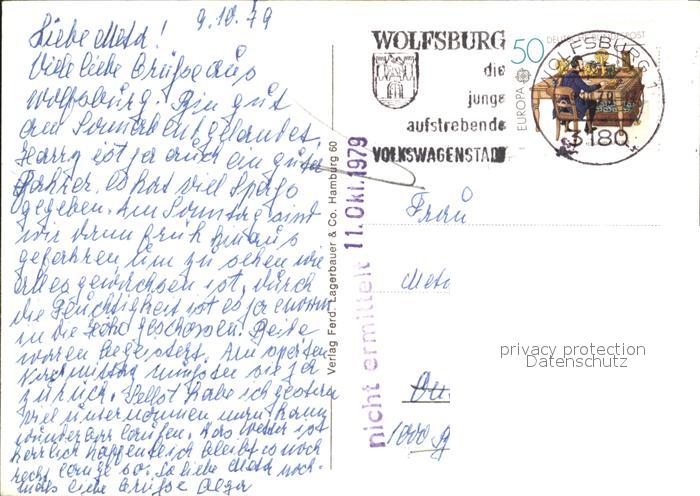 9.10.79
Liebe Meta!
Viele liebe Grüße aus
Wolfsburg. Bin gut
am Sonnabend gelandet,
Harry ist ja auch ein guter
Fahrer, es hat viel Spaß
gegeben. Am Sonntag sind
wir dann früh hinaus
gefahren um zu sehen wie
alles gewachsen ist, durch
die Feuchtigkeit ist es ja enorm
in die Höhe geschossen. Beide
waren begeistert. Am späten
Nachmittag mußten sie ja
zurück. Selbst habe ich gestern
viel unternommen man kann
wunderbar laufen. Das Wetter ist
herrlich hoffentlich bleibt es noch
recht lange so. So liebe Meta noch-
mals liebe Grüße Olga
Verlag Ferd. Lagerbauer & Co. Hamburg 60
WOLFSBURG
die
junge
aufstrebende
VOLKSWAGENSTADT
50
DEUTSCHE BUNDESPOST
EUROPA
WOLFSBURG 1
3180
nicht ermittelt 11. Okt. 1979
Frau
Meta
1000
privacy protection
Datenschutz